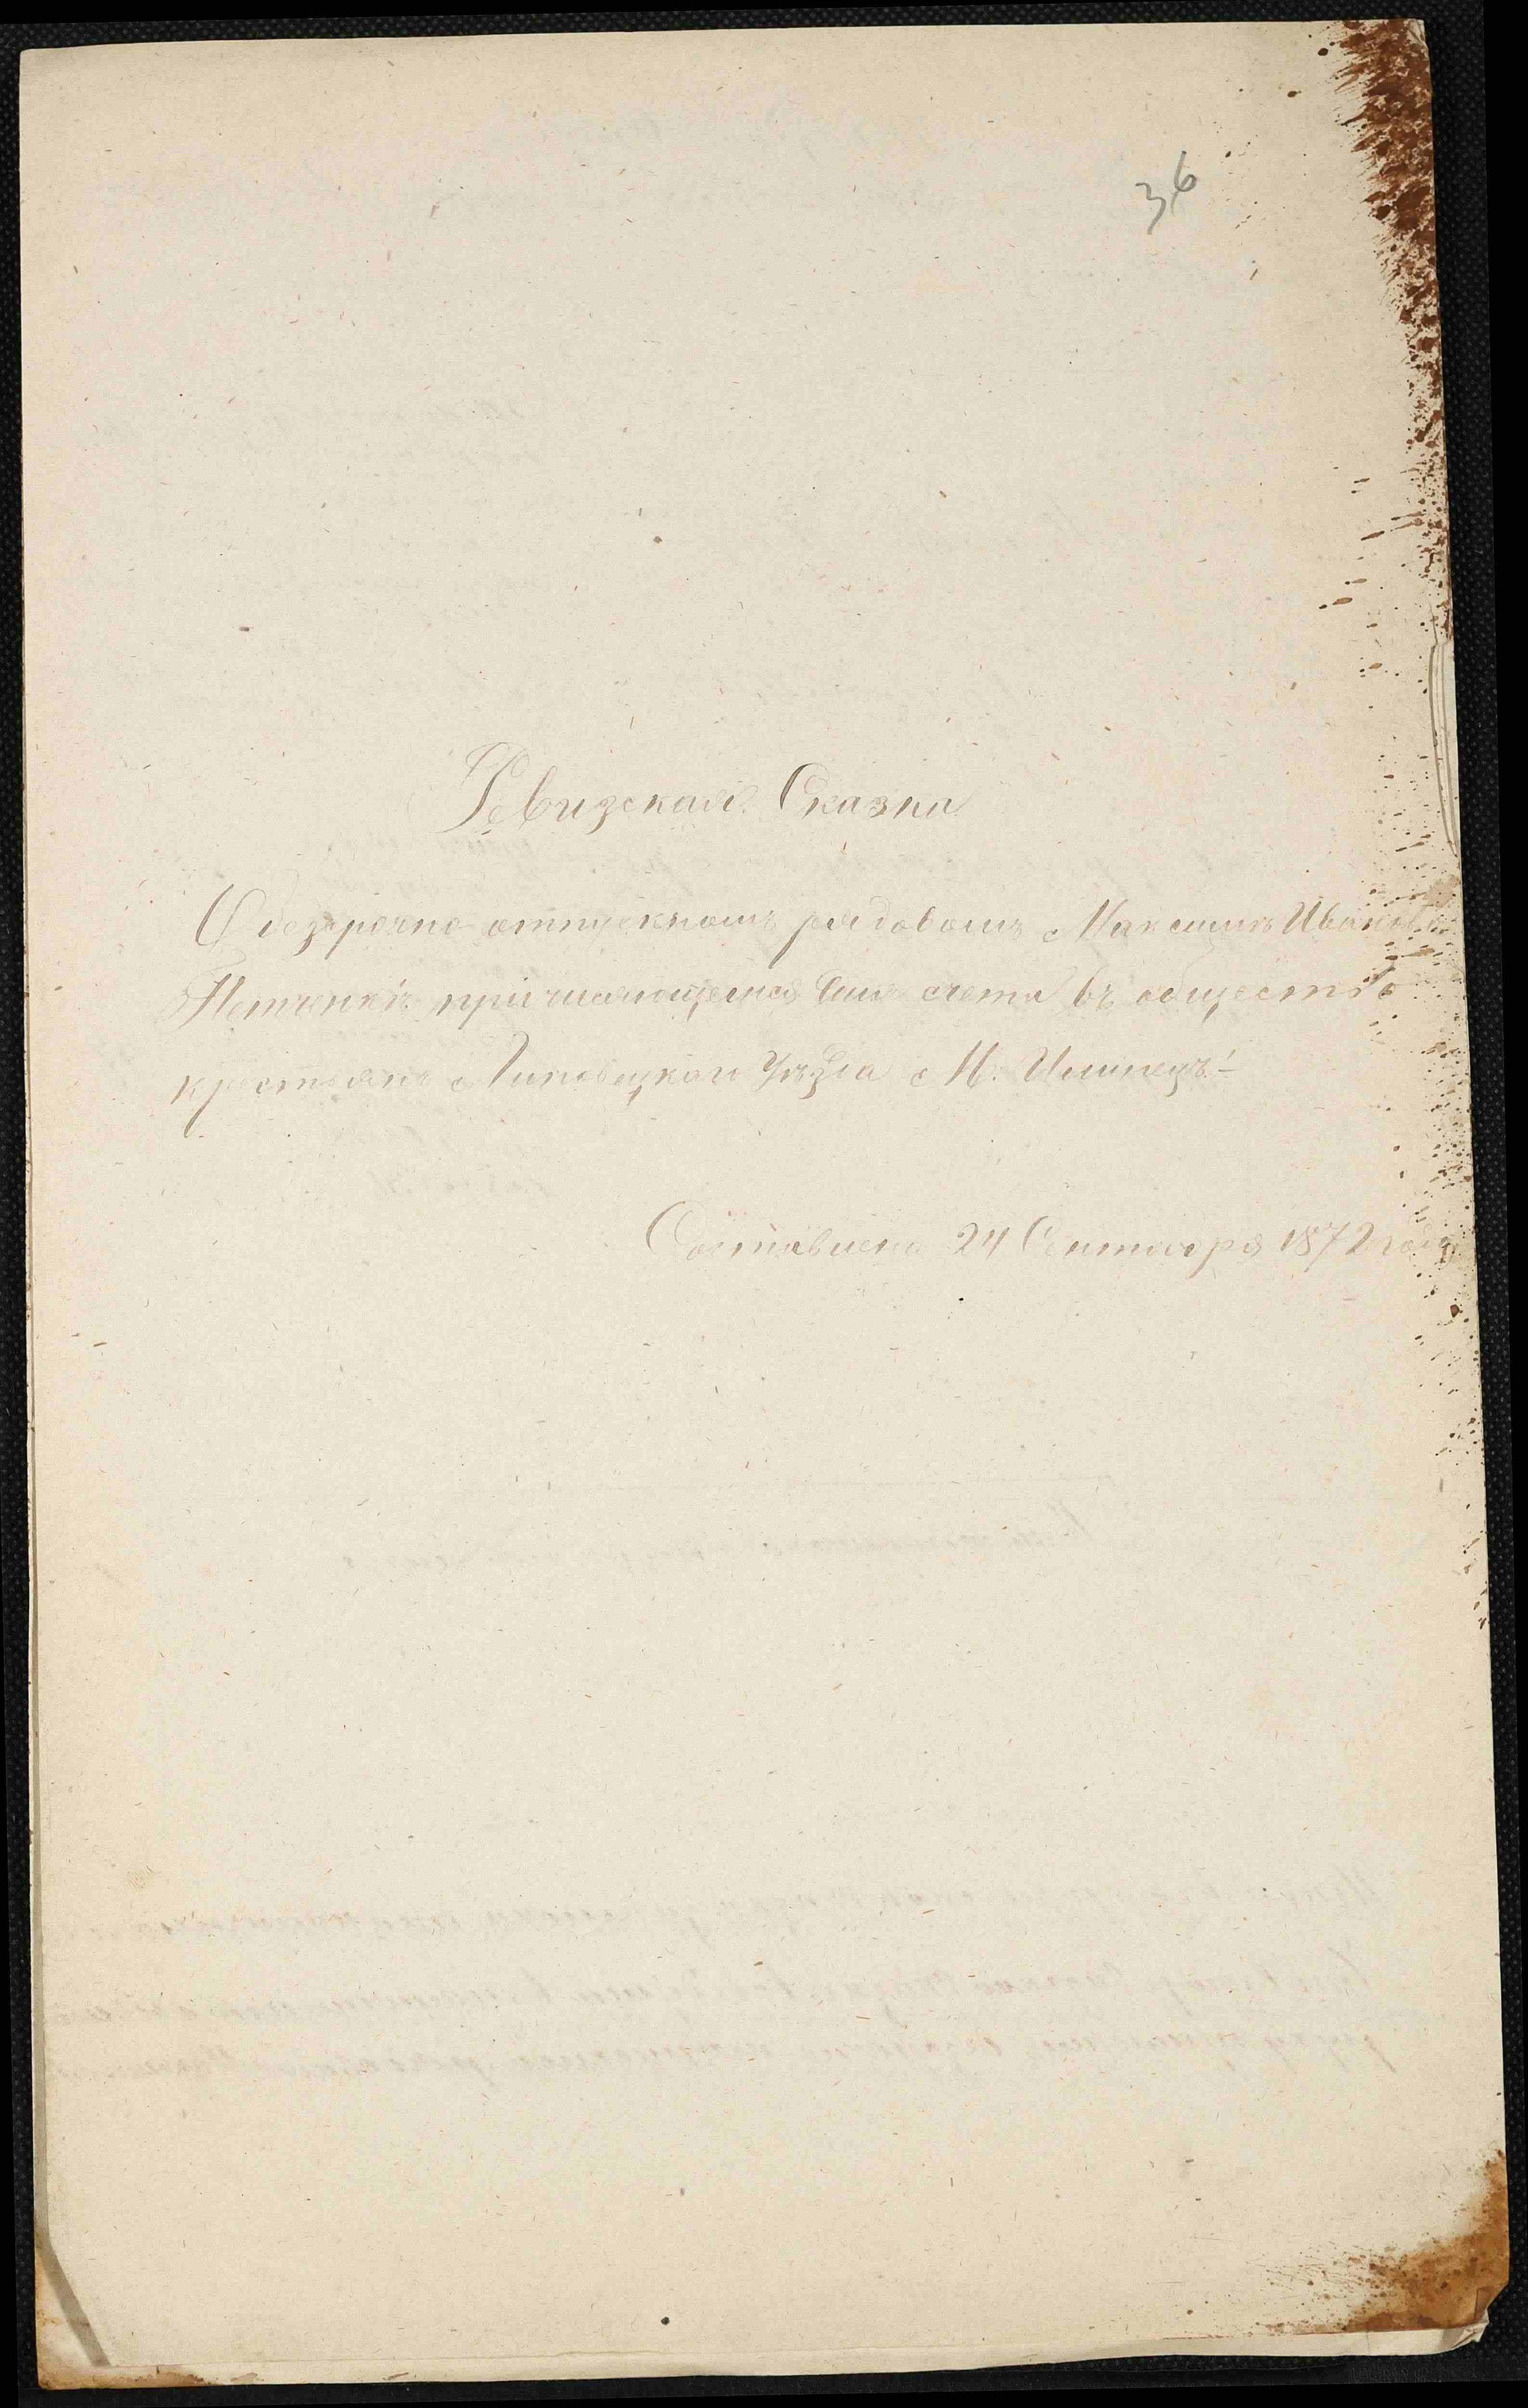 36
Ревизская Сказка
О безсрочно отпускномъ рядовомъ Максимѣ Ивановѣ
Петченкѣ причисляющемся внѣ счета въ общество
крестьянъ Липовецкаго Уѣзда М. Илинецъ.
Составлена 24 Сентября 1872 года